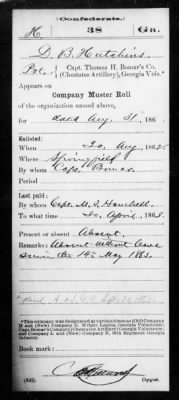 (Confederate.)
H 38 Ga.
D. B. Hutchins
Pvt., Capt. Thomas H. Bomar's Co.
(Chestatee Artillery), Georgia Vols.*
Appears on
Company Muster Roll
of the organization named above,
for dated Aug 31, 186
Enlisted:
When 20 Aug, 1862
Where Springfield
By whom Capt. Bomar
Period
Last paid:
By whom Capt.
To what time 30 April, 1863.
Present or absent Absent.
Remarks: Absent without leave
since the 14th May 1863.
*This company was designated at various times as (Old) Company
H and (New) Company D, Wright Legion, Georgia Volunteers;
Capt. Bomar's Company (Chestatee Artillery) Georgia Volunteers;
and Company L and (New) Company N, 38th Regiment Georgia
Infantry.
Book mark:
(642) Copyist.